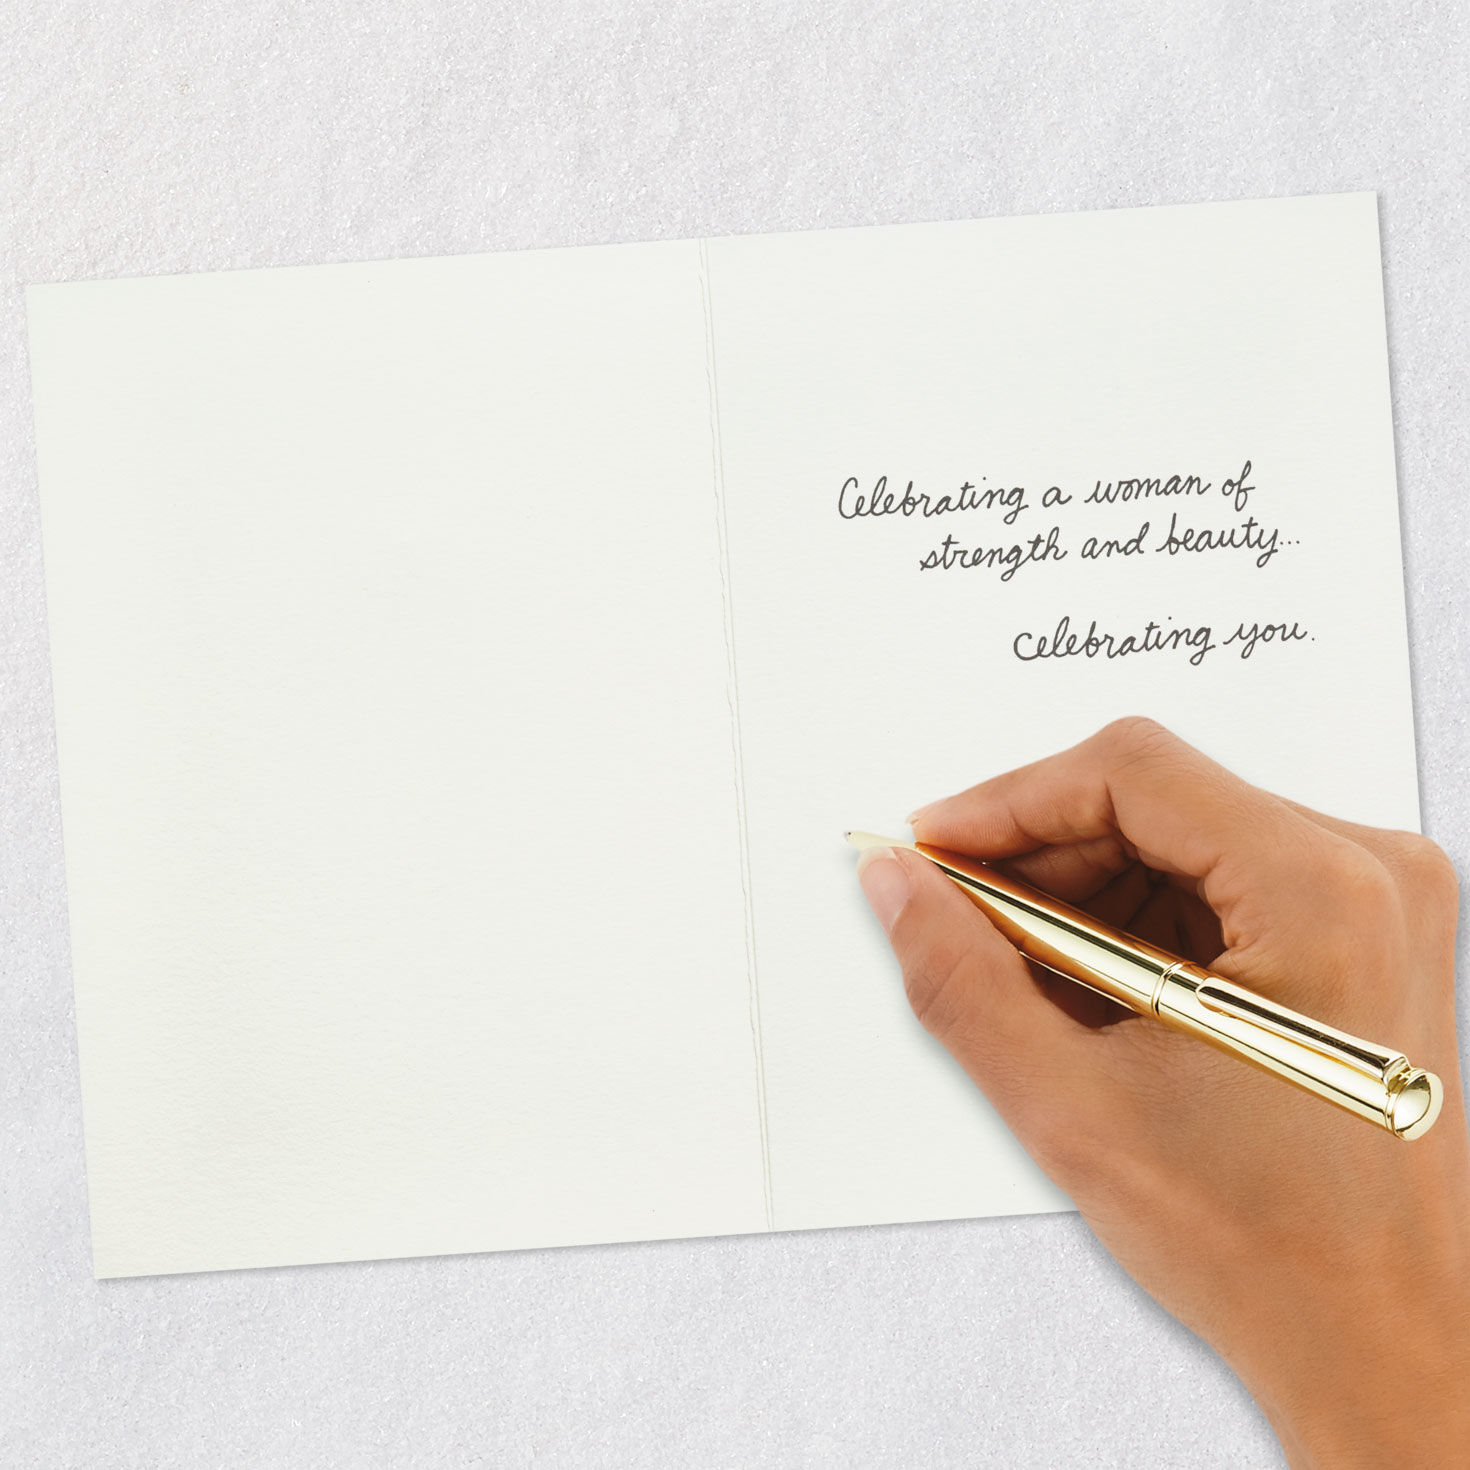 Celebrating a woman of
strength and beauty...
celebrating you.